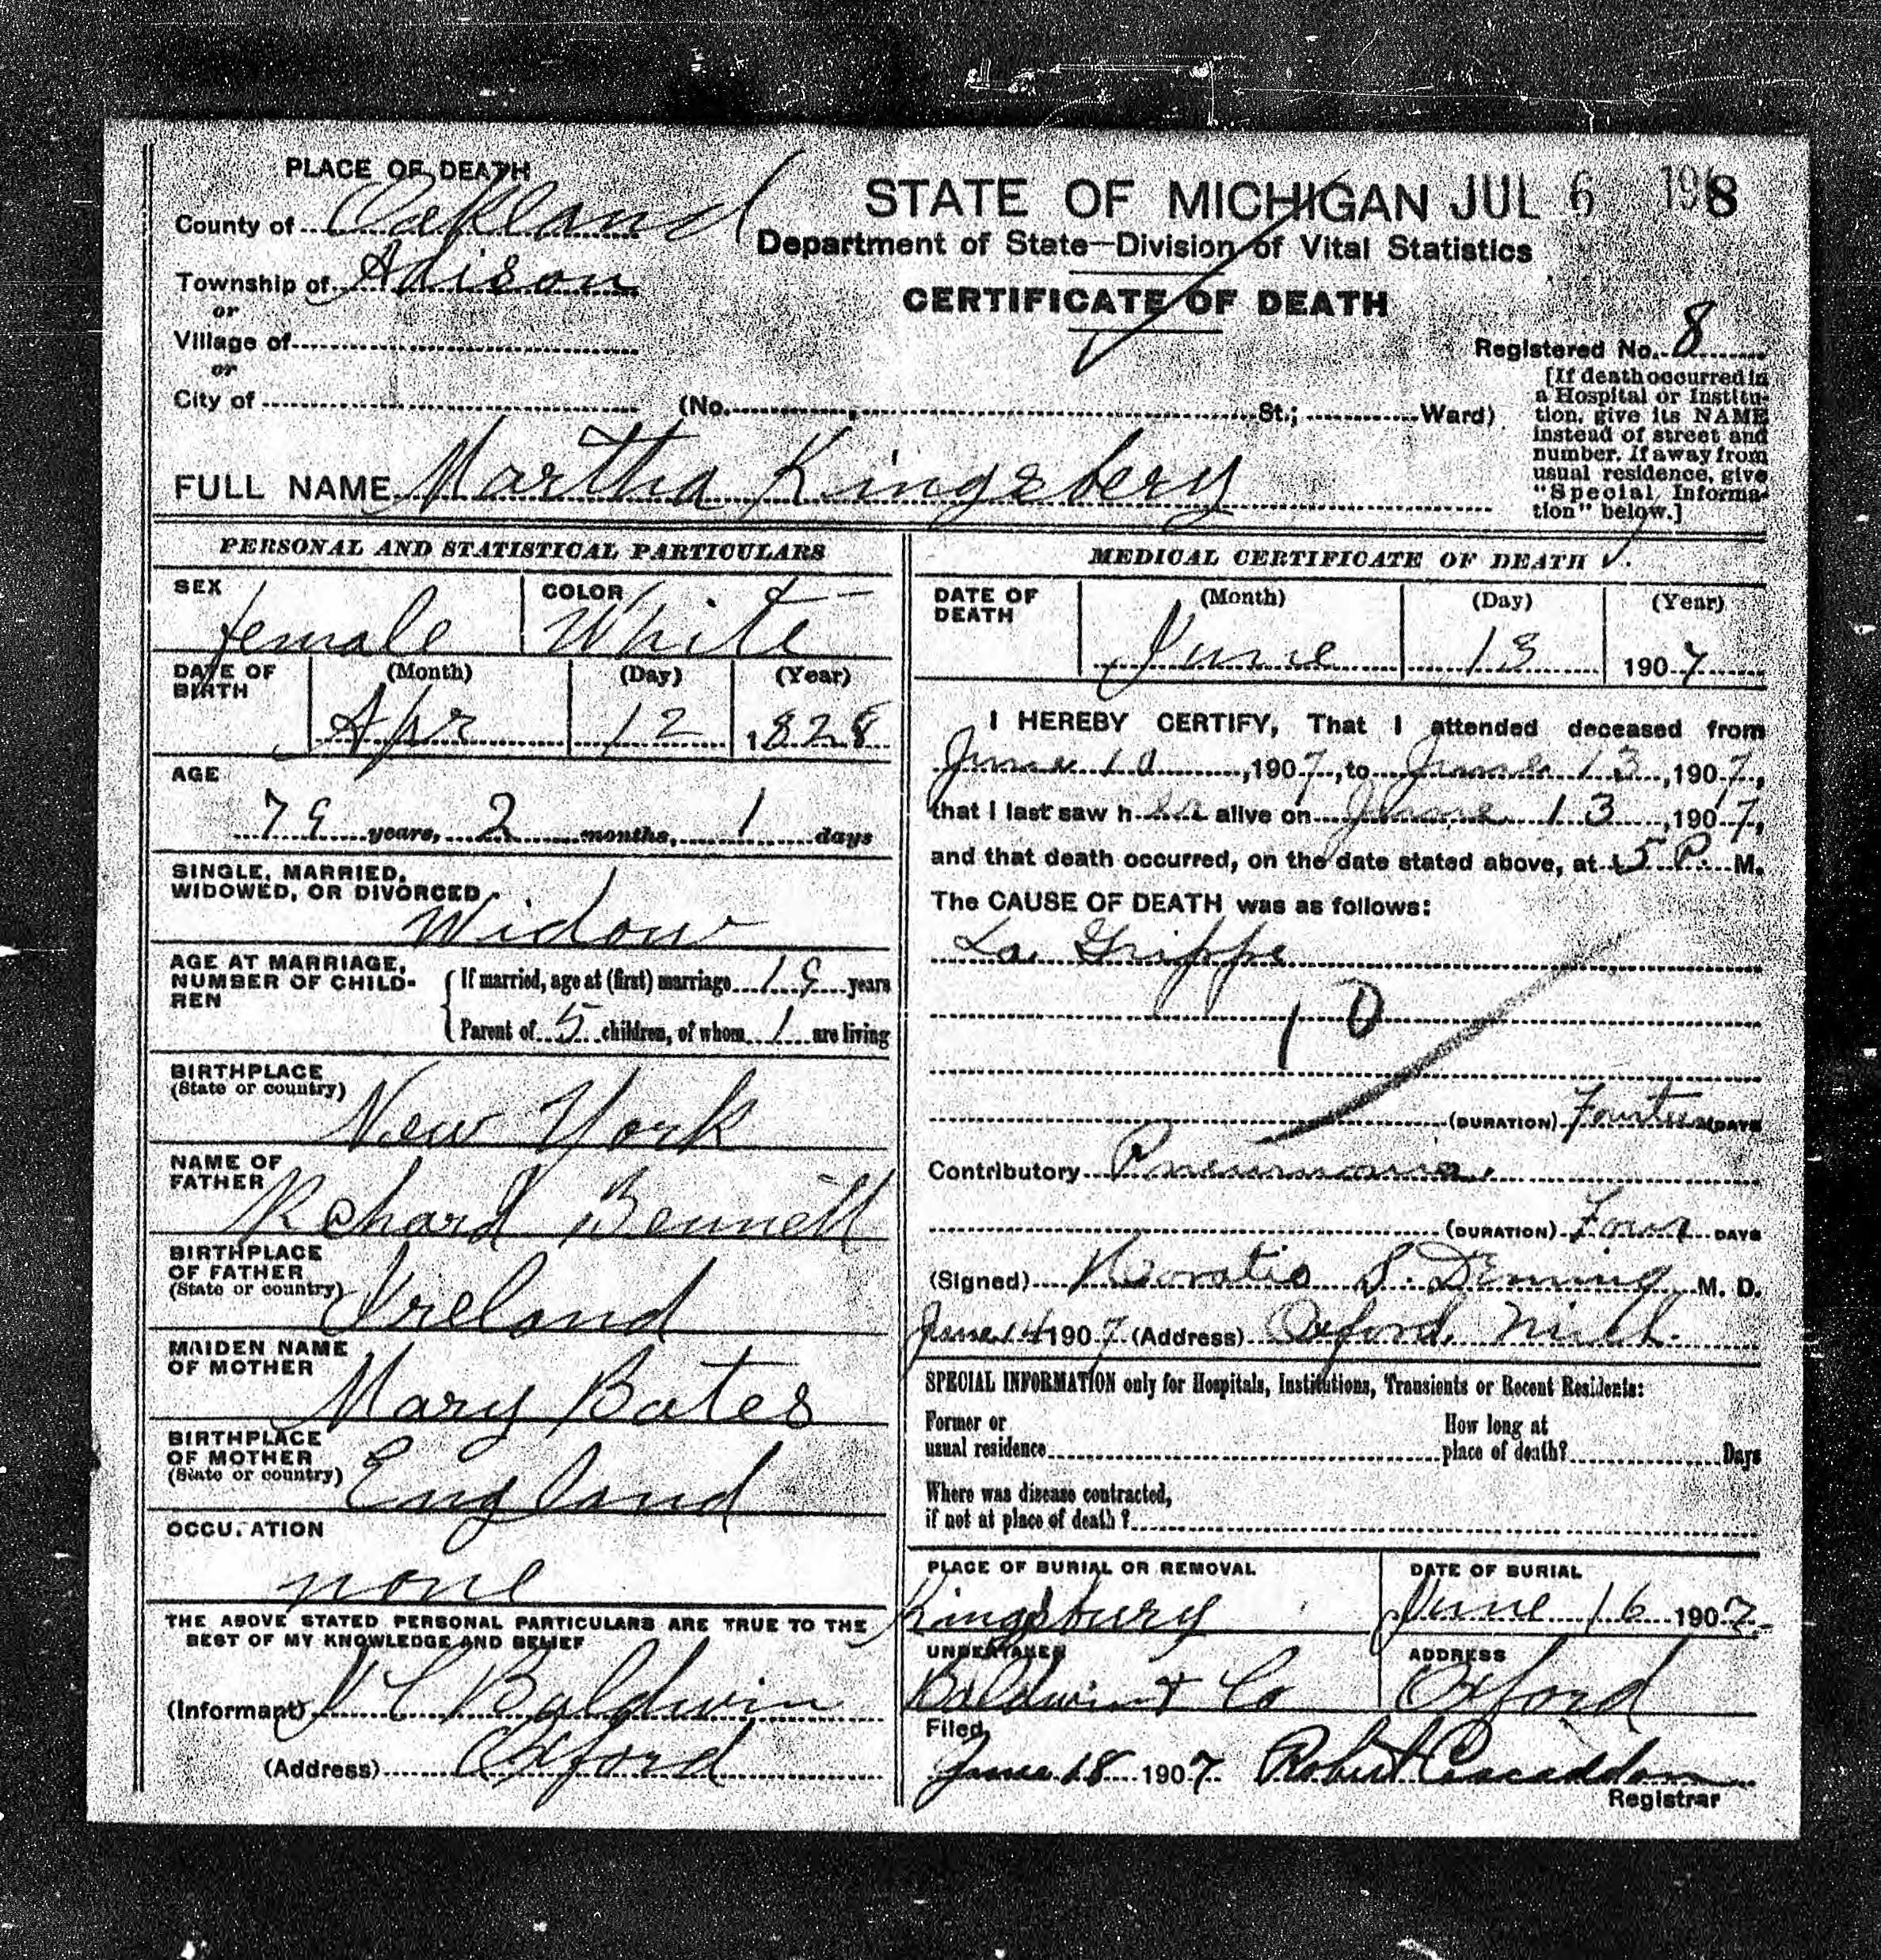 PLACE OF DEATH
County of Oakland
Township of Adison
or
Village of
or
City of
STATE OF MICHIGAN JUL 6 1908
Department of State—Division of Vital Statistics
CERTIFICATE OF DEATH
Registered No. 8
(No. , St.; Ward)
[If death occurred in
a Hospital or Institu-
tion, give its NAME
instead of street and
number. If away from
usual residence, give
"Special Informa-
tion" below.]
FULL NAME Martha Kingsbery
PERSONAL AND STATISTICAL PARTICULARS
SEX
female
COLOR
White
DATE OF
BIRTH
(Month) (Day) (Year)
Apr 12 1828
AGE
79 years, 2 months, 1 days
SINGLE, MARRIED,
WIDOWED, OR DIVORCED
Widow
AGE AT MARRIAGE,
NUMBER OF CHILD-
REN
If married, age at (first) marriage 19 years
Parent of 5 children, of whom 1 are living
BIRTHPLACE
(State or country)
New York
NAME OF
FATHER
Richard Bennett
BIRTHPLACE
OF FATHER
(State or country)
Ireland
MAIDEN NAME
OF MOTHER
Mary Bates
BIRTHPLACE
OF MOTHER
(State or country)
England
OCCUPATION
none
THE ABOVE STATED PERSONAL PARTICULARS ARE TRUE TO THE
BEST OF MY KNOWLEDGE AND BELIEF
(Informant) Baldwin
(Address) Oxford
MEDICAL CERTIFICATE OF DEATH
DATE OF
DEATH
(Month) (Day) (Year)
June 13 1907
I HEREBY CERTIFY, That I attended deceased from
June 10, 1907, to June 13, 1907,
that I last saw her alive on June 13, 1907,
and that death occurred, on the date stated above, at 5 P. M.
The CAUSE OF DEATH was as follows:
La Grippe
10
(DURATION) Fourteen DAYS
Contributory Pneumonia
(DURATION) Four DAYS
(Signed) Horatio S. Deming M. D.
June 14 1907 (Address) Oxford, Mich.
SPECIAL INFORMATION only for Hospitals, Institutions, Transients or Recent Residents:
Former or
usual residence
How long at
place of death? Days
Where was disease contracted,
if not at place of death?
PLACE OF BURIAL OR REMOVAL
Kingsbury
DATE OF BURIAL
June 16 1907
UNDERTAKER
Baldwin & Co
ADDRESS
Oxford
Filed
June 18 1907 Robert Cascaddan
Registrar